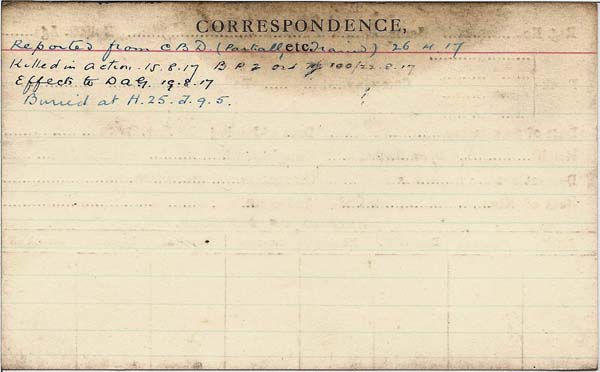 CORRESPONDENCE,
etc.
Reported from C B D (Partially Trained) 26 4 17
Killed in Action 15.8.17 B P 2 ord 100/22.8.17
Effects to D A G. 19.8.17
Buried at H.25.d.9.5.